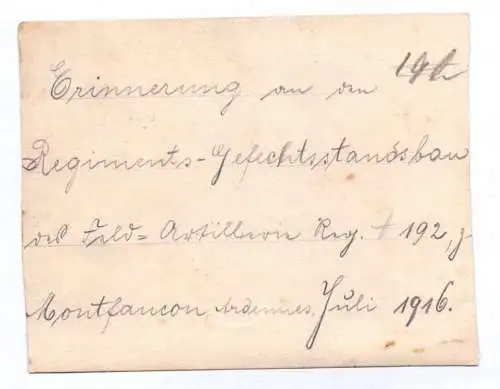 Erinnerung an den
Regiments-Gefechtsstandsbau
des Feld=Artillerie Reg. 192,
Montfaucon Ardennes, Juli 1916.